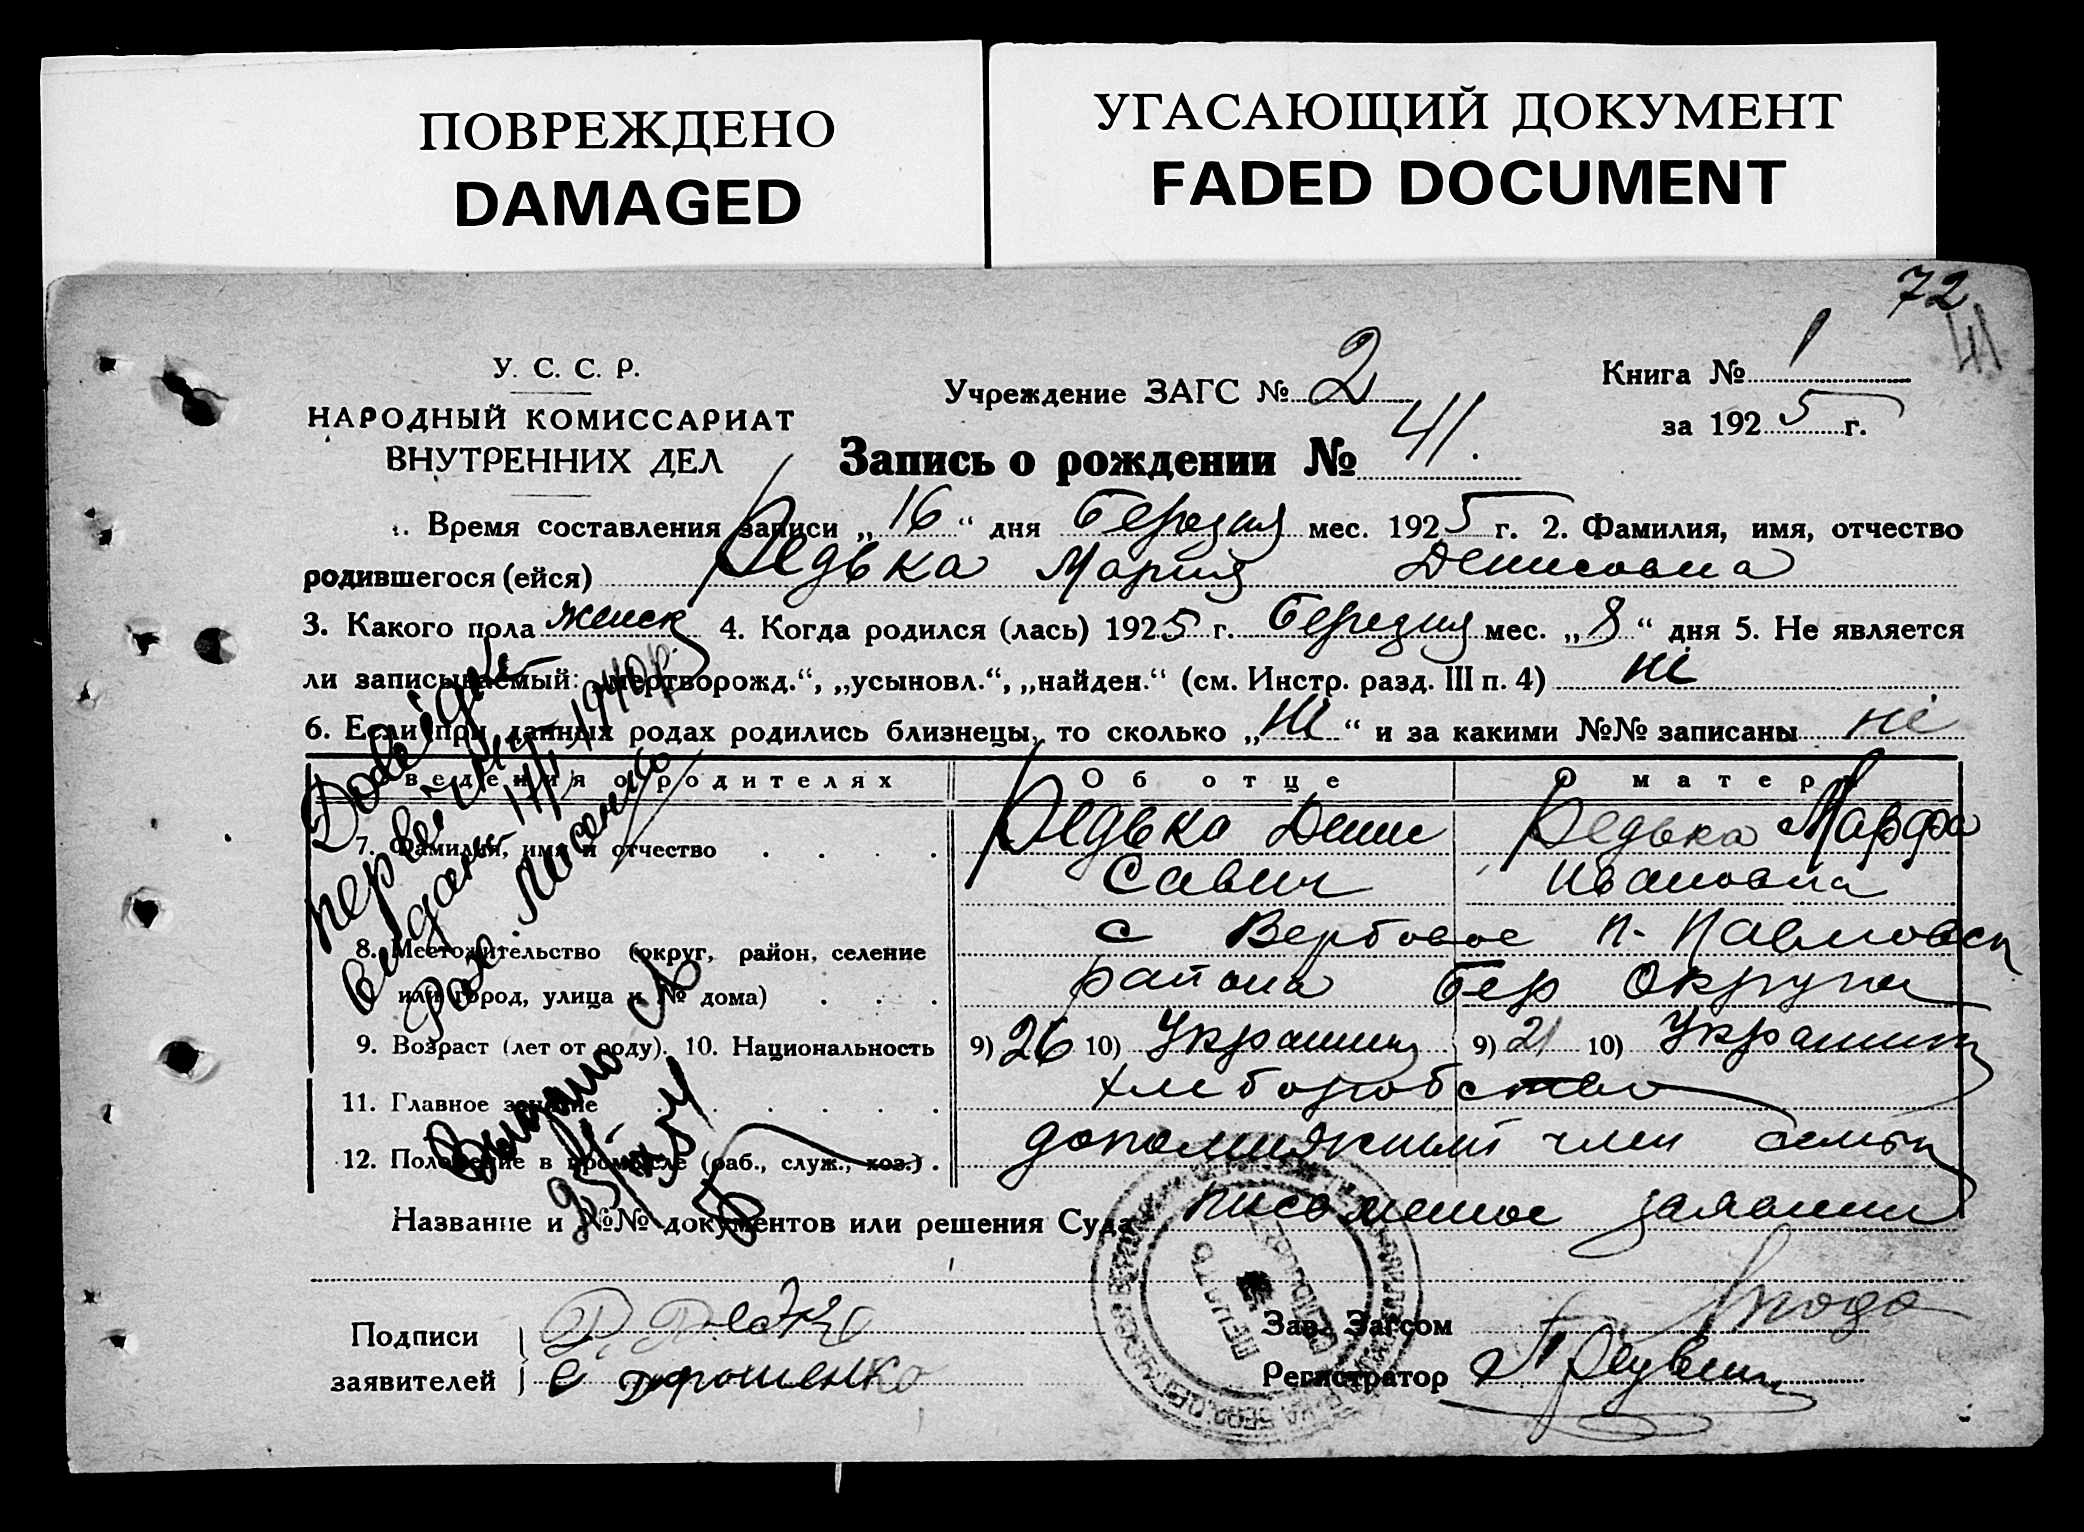 ПОВРЕЖДЕНО
DAMAGED
УГАСАЮЩИЙ ДОКУМЕНТ
FADED DOCUMENT
72
41
У. С. С. Р.
НАРОДНЫЙ КОМИССАРИАТ
ВНУТРЕННИХ ДЕЛ
Учреждение ЗАГС № 2
Книга № 1
за 1925 г.
Запись о рождении № 41.
Время составления записи „16“ дня Березня мес. 1925 г. 2. Фамилия, имя, отчество
родившегося (ейся) Редька Мария Денисовна
3. Какого пола женск 4. Когда родился (лась) 1925 г. Березня мес. „8“ дня 5. Не является
ли записываемый: „мертворожд.“, „усыновл.“, „найден.“ (см. Инстр. разд. III п. 4) ні
6. Если при данных родах родились близнецы, то сколько „ні“ и за какими №№ записаны ні
Сведения о родителях Об отце О матери
7. Фамилия, имя и отчество . . . . Редька Денис Редька Марфа
Савич Ивановна
8. Местожительство (округ, район, селение с Вербовое П-Павловск
или город, улица и № дома) . . . района Бер Округи
9. Возраст (лет от роду). 10. Национальность 9) 26 10) Украинец 9) 21 10) Украинка
11. Главное занятие . . . . . . хлеборобство
12. Положение в промысле (раб., служ., хоз.) . член семьи
Название и №№ документов или решения Суда письменное
Подписи
заявителей
Зав. Загсом
Регистратор
Довідку
первичну
видано 1940р.
Выдано
ПЕЧАТЬ